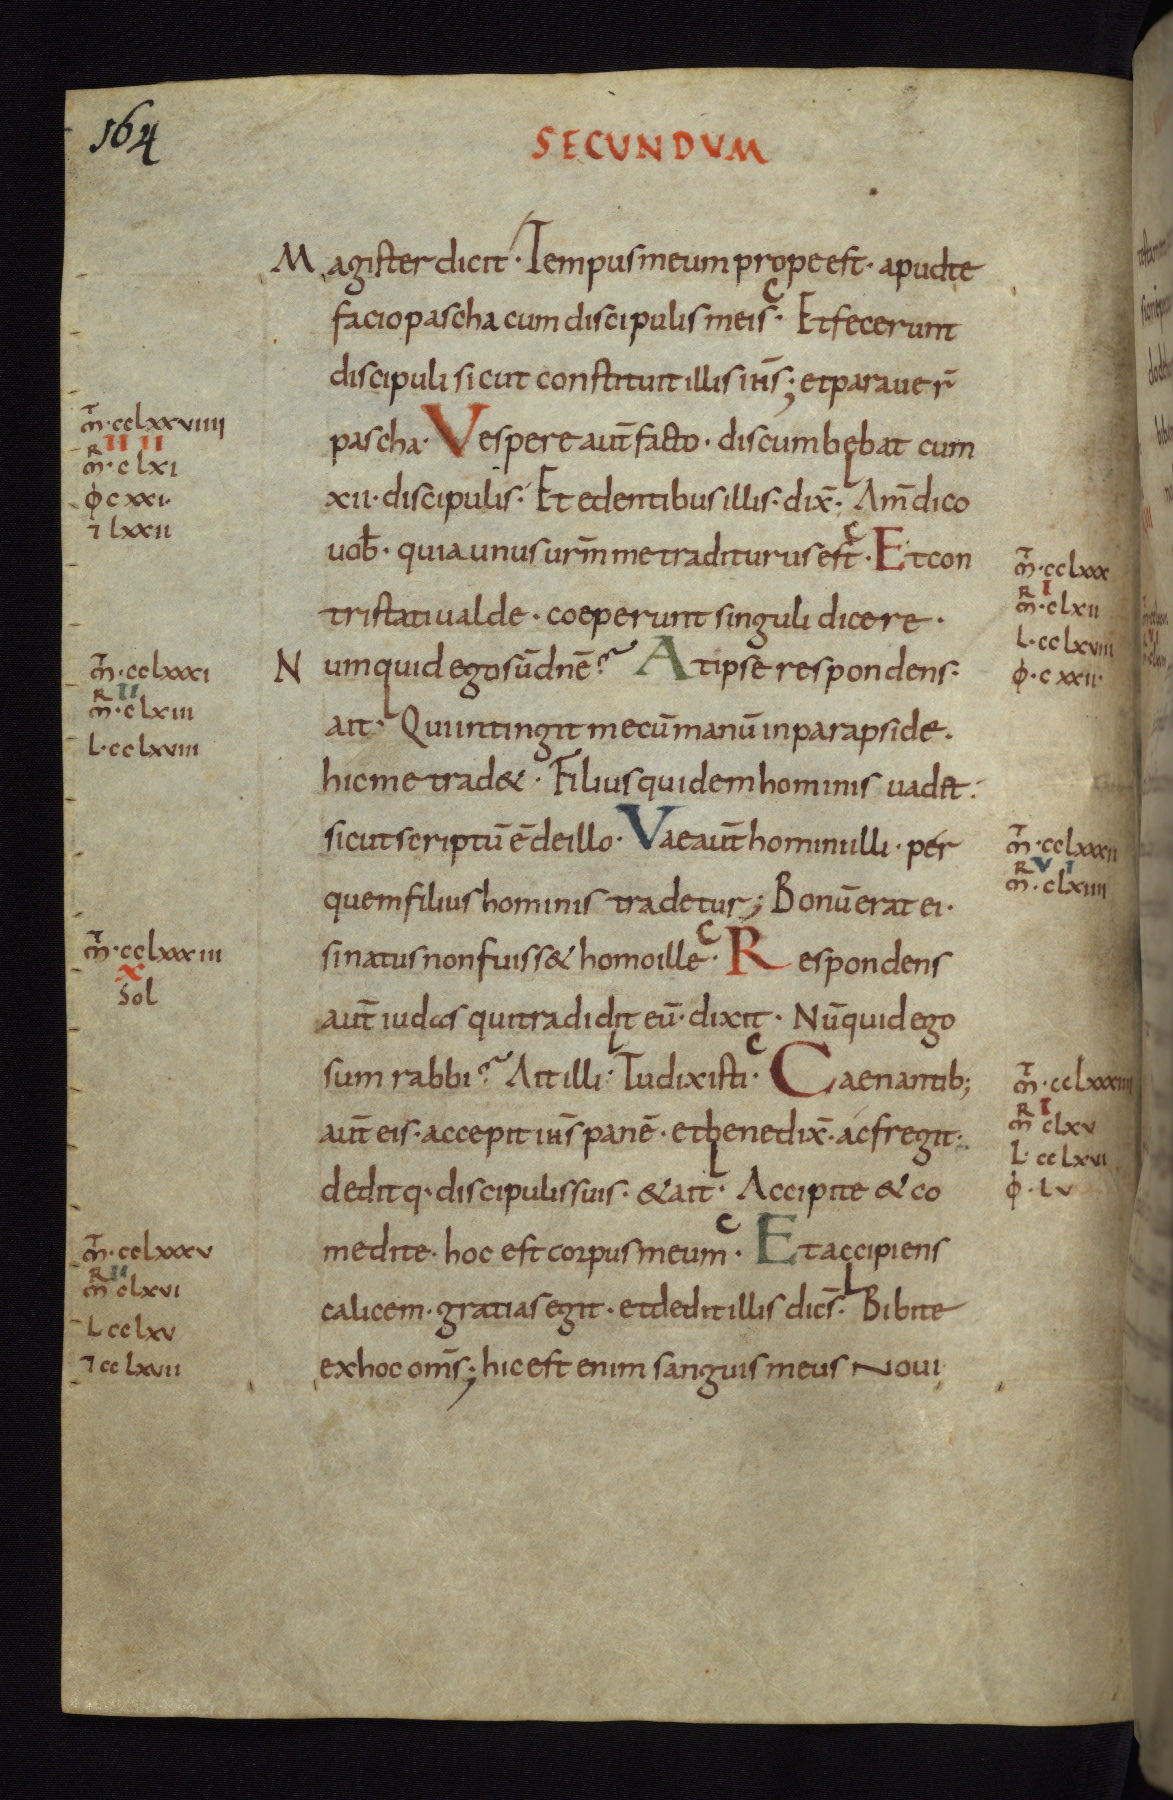 164
SECUNDVM
Magister dicit · Tempus meum prope est · apud te
facio pascha cum discipulis meis · Et fecerunt
discipuli sicut constituit illis ih̄s; et parauer̄
pascha · Vespere aut̄ facto · discumbebat cum
xii · discipulis · Et edentibus illis · dix̄ · Am̄ dico
uob̄ · quia unus ur̄m me traditurus est · Et con
tristati ualde · coeperunt singuli dicere ·
Numquid ego sū dn̄e? At ipse respondens ·
ait · Qui intingit mecū manū in parapside ·
hic me trad& · Filius quidem hominis uadit ·
sicut scriptū ē de illo · Vae aut̄ homini illi · per
quem filius hominis tradetur; Bonū erat ei ·
si natus non fuiss& homo ille · Respondens
aut̄ iudas qui tradidit eū · dixit · Nūquid ego
sum rabbi? Ait illi · Tu dixisti · Caenantib;
aut̄ eis · accepit ih̄s panē · et benedix̄ · ac fregit ·
deditq · discipulis suis · & ait · Accipite & co
medite · hoc est corpus meum · Et accipiens
calicem · gratias egit · et dedit illis dic̄s · Bibite
ex hoc om̄s; hic est enim sanguis meus noui
m̄ · cclxxviiii
R II II
m · clxi
φ cxxi ·
i lxxii
m̄ · cclxxxi
R II
m · clxiii
L · cclxviii
m̄ · cclxxxiii
X
Sol
m̄ · cclxxxv
R II
m clxvi
L cclxv
i cclxvii
m̄ · cclxxx
R I
m · clxii
L · cclxviii
φ · cxxii ·
m̄ · cclxxxii
R V I
m · clxiiii
m̄ · cclxxxiiii
R I
m clxv
L · cclxvi
φ · lv